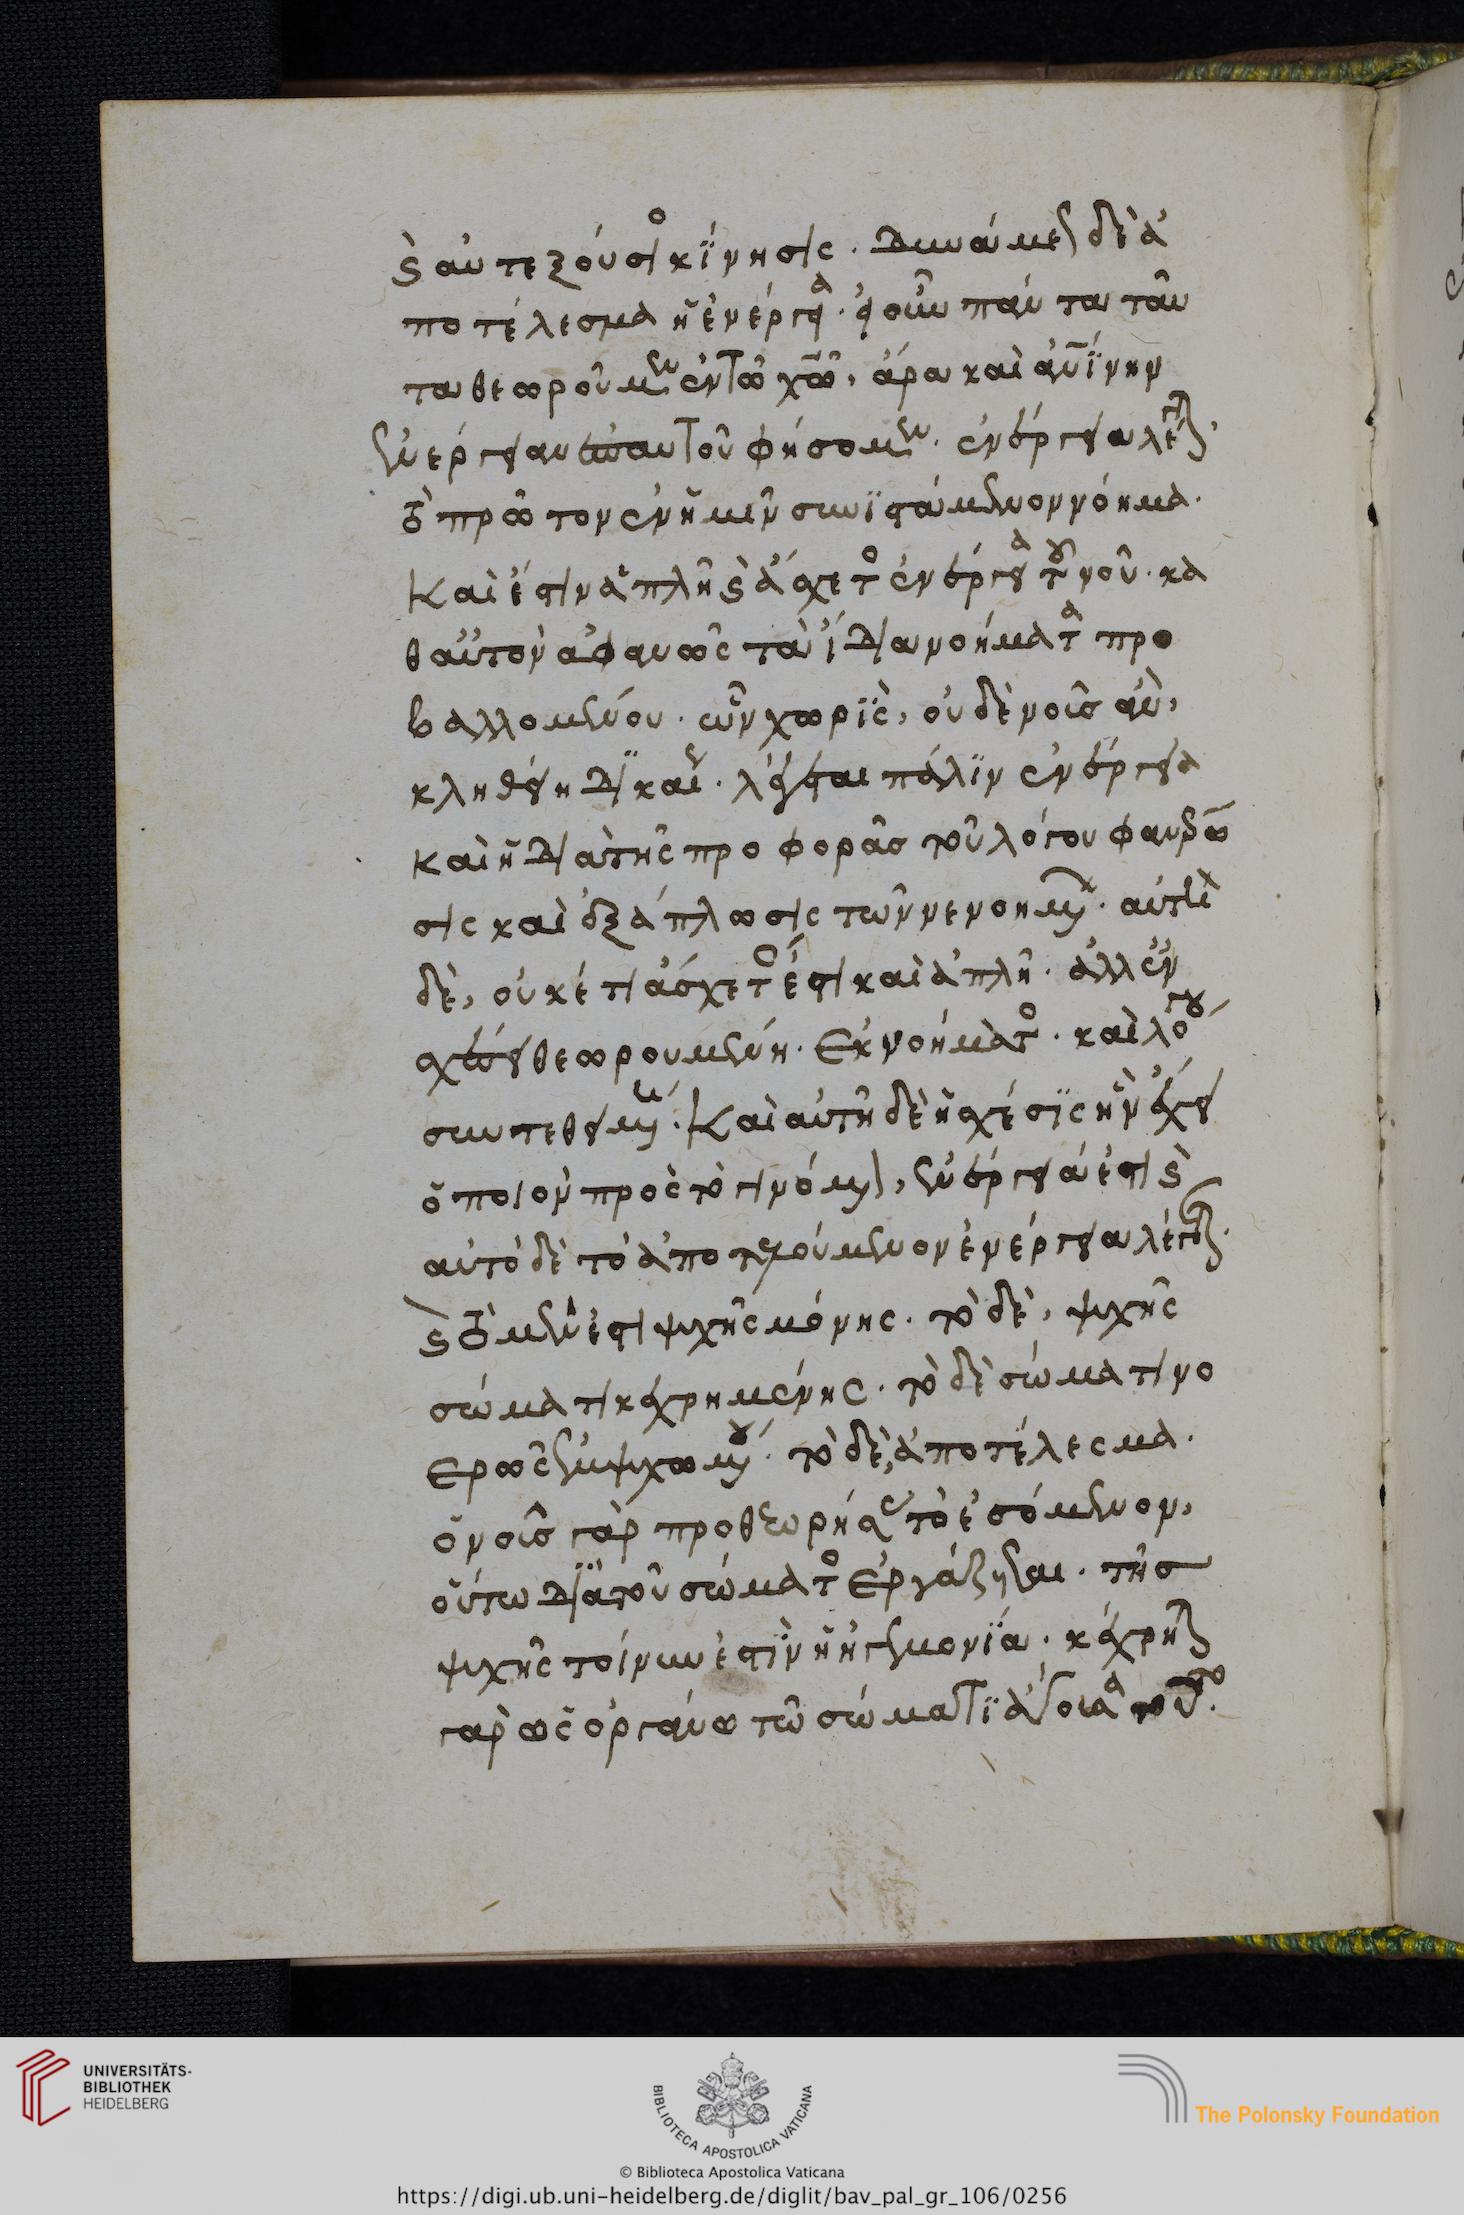 καὶ αὐτεξούσιος κίνησις. δυνάμεως δὲ ἀ
ποτέλεσμα ἡ ἐνέργεια. εἰ οὖν πάντα ταῦ
τα θεωροῦμεν ἐν τῷ χῷ, ἄρα καὶ ἀνθρωπίνην
ἐνέργειαν ἐπ' αὐτοῦ φήσομεν. ἐνέργεια λέγεται
τὸ πρῶτον ἐν ἡμῖν συνϊστάμενον νόημα.
Καὶ ἔστιν ἁπλῆ καὶ ἄσχετος ἐνέργεια τοῦ νοῦ. κα
θ' αὑτὸν ἀφανῶς τὰ ἴδια νοήματα προ
βαλλομένου. ὧν χωρὶς, οὐδὲ νοῦς ἂν,
κληθείη δικαίως. λέγεται πάλϊν ἐνέργεια
καὶ ἡ διὰ τῆς προφορᾶς τοῦ λόγου φανέρω
σις καὶ ἐξάπλωσις τῶν νενοημένων. αὕτη
δὲ, οὐκέτι ἄσχετός ἐστι καὶ ἁπλῆ. ἀλλ' ἐν
σχέσει θεωρουμένη. ἐκ νοήματος. καὶ λόγου
συντεθειμένη. Καὶ αὐτὴ δὲ ἡ σχέσϊς ἣν ἔχει
ὁ ποιῶν πρὸς τὸ γινόμενον, ἐνέργειά ἐστι καὶ
αὐτὸ δὲ τὸ ἀποτελούμενον ἐνέργεια λέγεται.
καὶ τὸ μέν ἐστι ψυχῆς μόνης. τὸ δὲ, ψυχῆς
σώματι κεχρημένης. τὸ δὲ σώματι νο
ερῶς ἐμψυχωμένου. τὸ δὲ, ἀποτέλεσμα.
ὁ νοῦς γὰρ προθεωρήσας τὸ ἐσόμενον,
οὕτω διὰ τοῦ σώματος ἐργάζεται. τῆς
ψυχῆς τοίνυν ἐστὶν ἡ ἡγεμονία. κέχρηται
γὰρ ὡς ὀργάνῳ τῷ σώματϊ ἄγουσα τοῦτο.
UNIVERSITÄTS-
BIBLIOTHEK
HEIDELBERG
BIBLIOTECA APOSTOLICA VATICANA
The Polonsky Foundation
© Biblioteca Apostolica Vaticana
https://digi.ub.uni-heidelberg.de/diglit/bav_pal_gr_106/0256